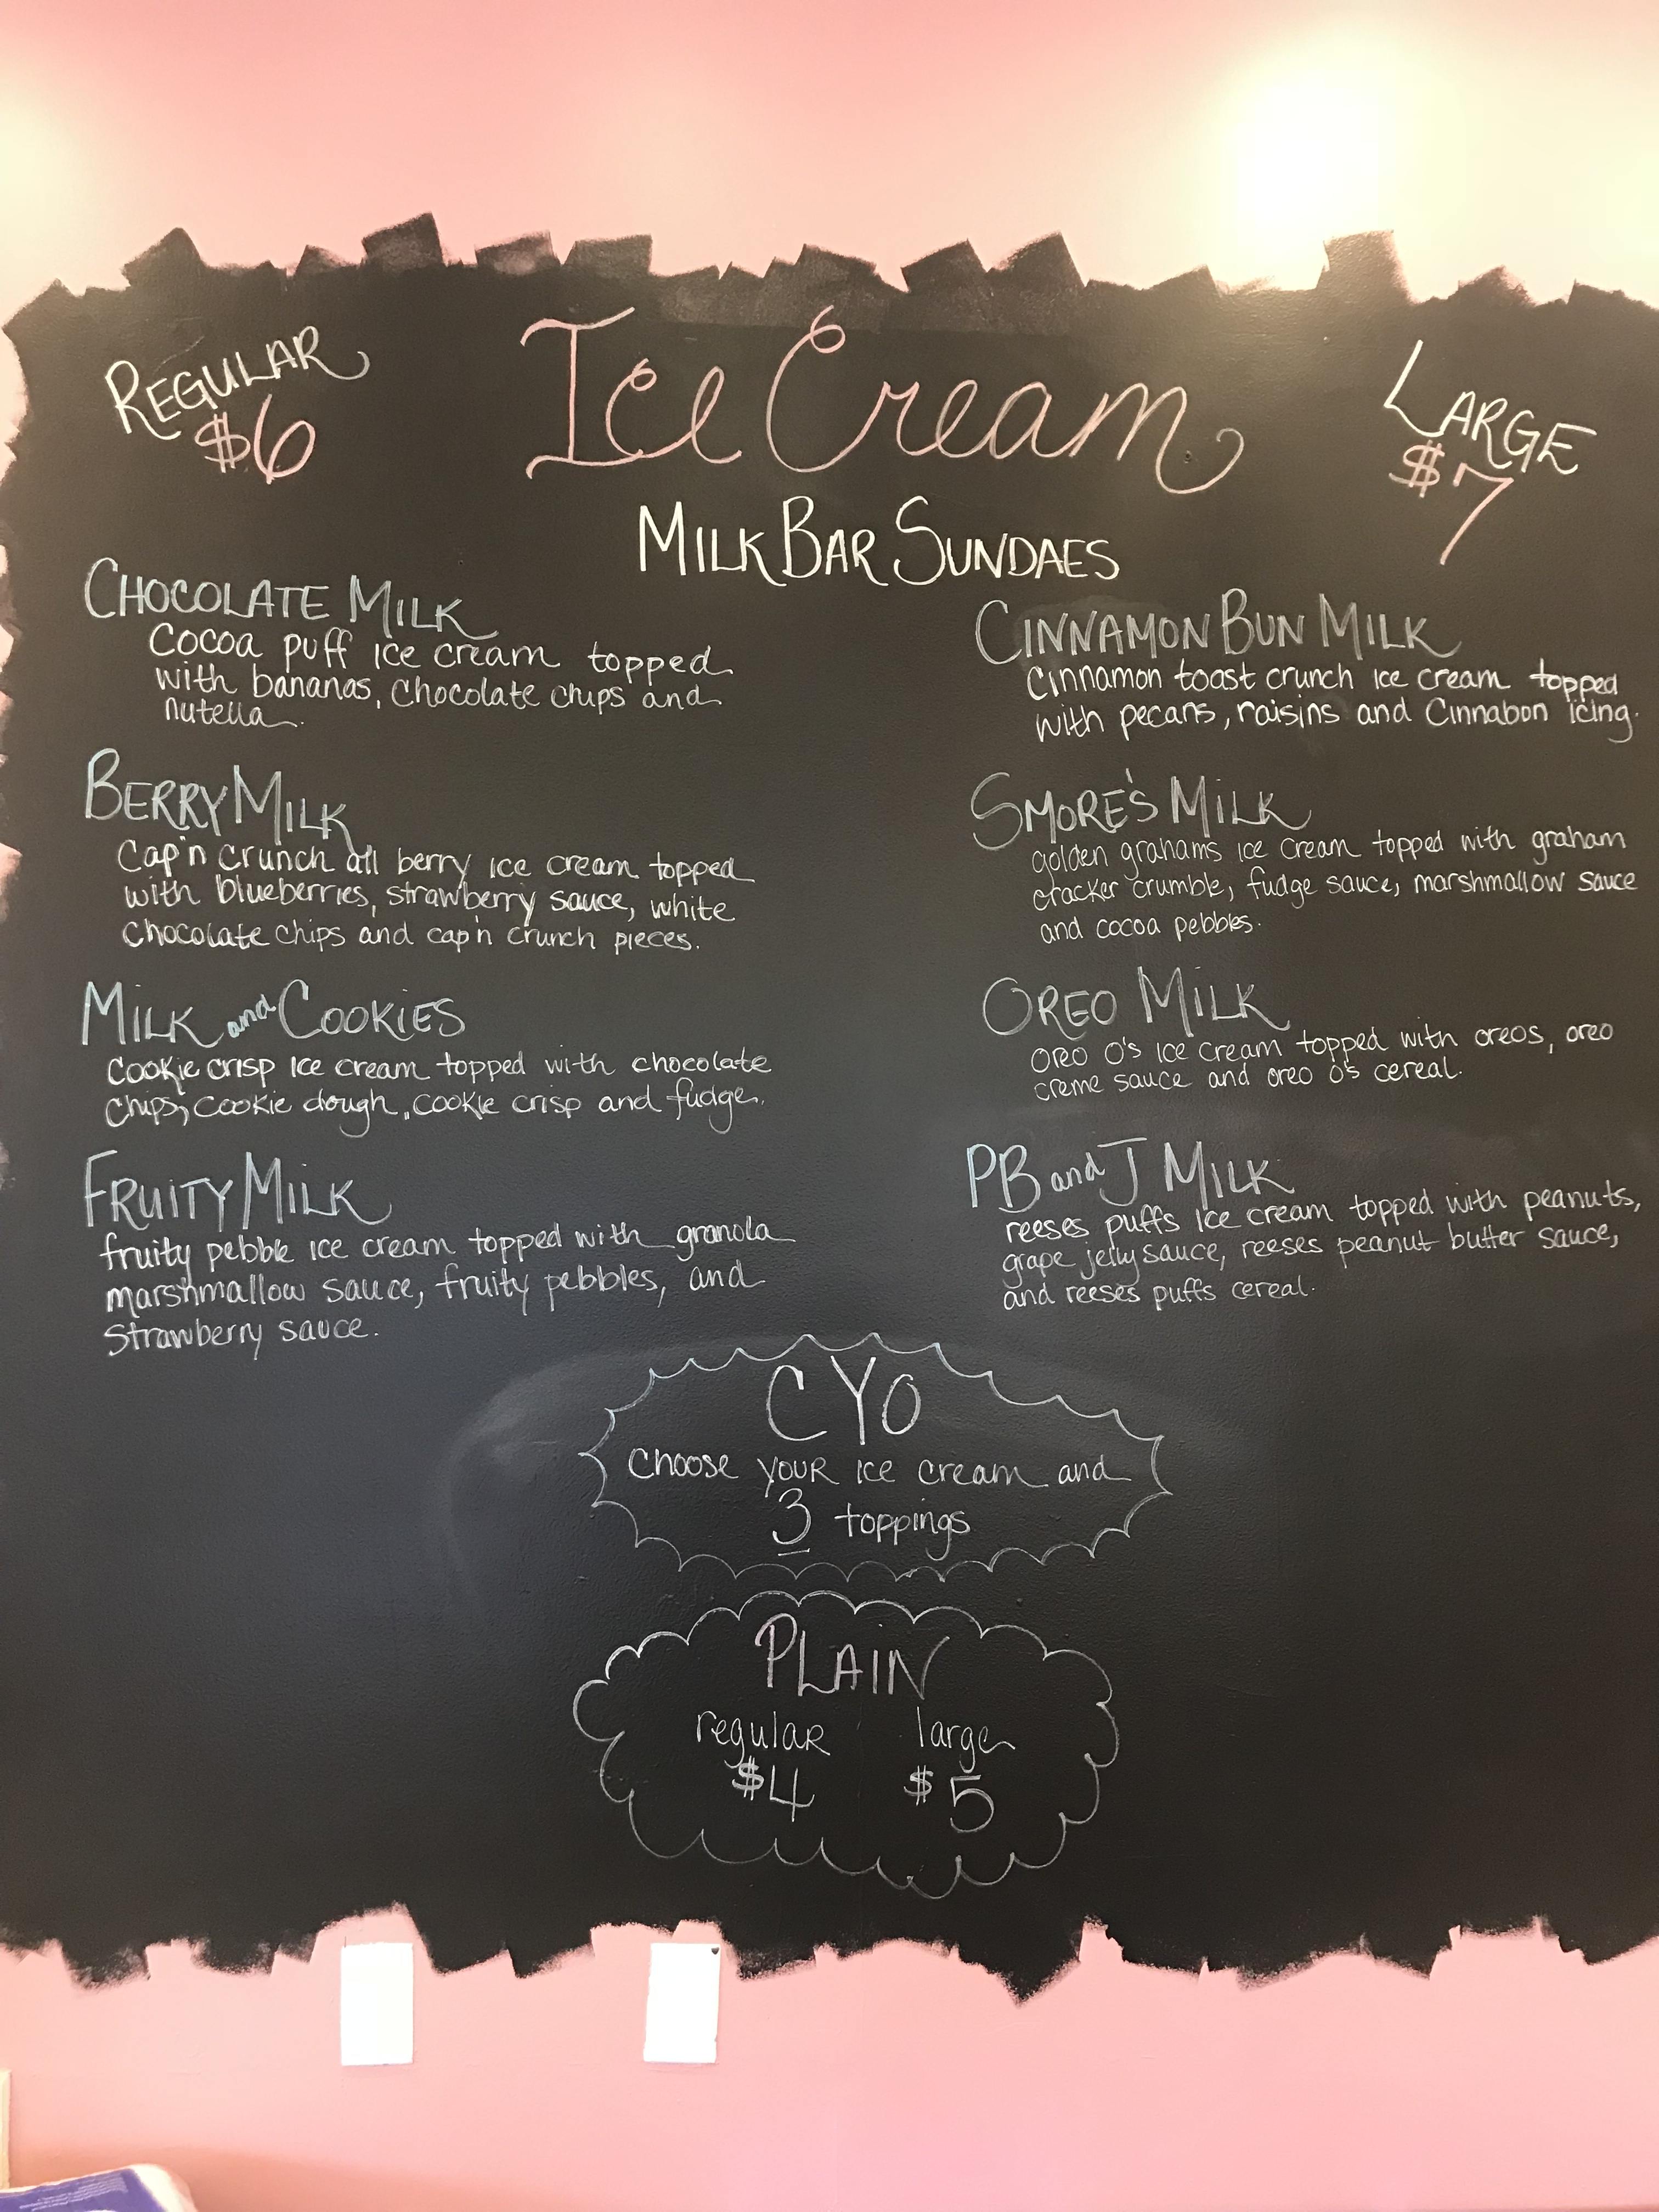 REGULAR
$6
Ice Cream
LARGE
$7
MILK BAR SUNDAES
CHOCOLATE MILK
Cocoa puff ice cream topped
with bananas, chocolate chips and
nutella.
BERRY MILK
Cap'n crunch all berry ice cream topped
with blueberries, strawberry sauce, white
chocolate chips and cap'n crunch pieces.
MILK and COOKIES
Cookie crisp ice cream topped with chocolate
chips, cookie dough, cookie crisp and fudge.
FRUITY MILK
fruity pebble ice cream topped with granola
marshmallow sauce, fruity pebbles, and
strawberry sauce.
CINNAMON BUN MILK
Cinnamon toast crunch ice cream topped
with pecans, raisins and Cinnabon icing.
SMORE'S MILK
golden grahams ice cream topped with graham
cracker crumble, fudge sauce, marshmallow sauce
and cocoa pebbles.
OREO MILK
oreo O's ice cream topped with oreos, oreo
creme sauce and oreo o's cereal.
PB and J MILK
reeses puffs ice cream topped with peanuts,
grape jelly sauce, reeses peanut butter sauce,
and reeses puffs cereal.
CYO
Choose YOUR ice cream and
3 toppings
PLAIN
regular large
$4 $5